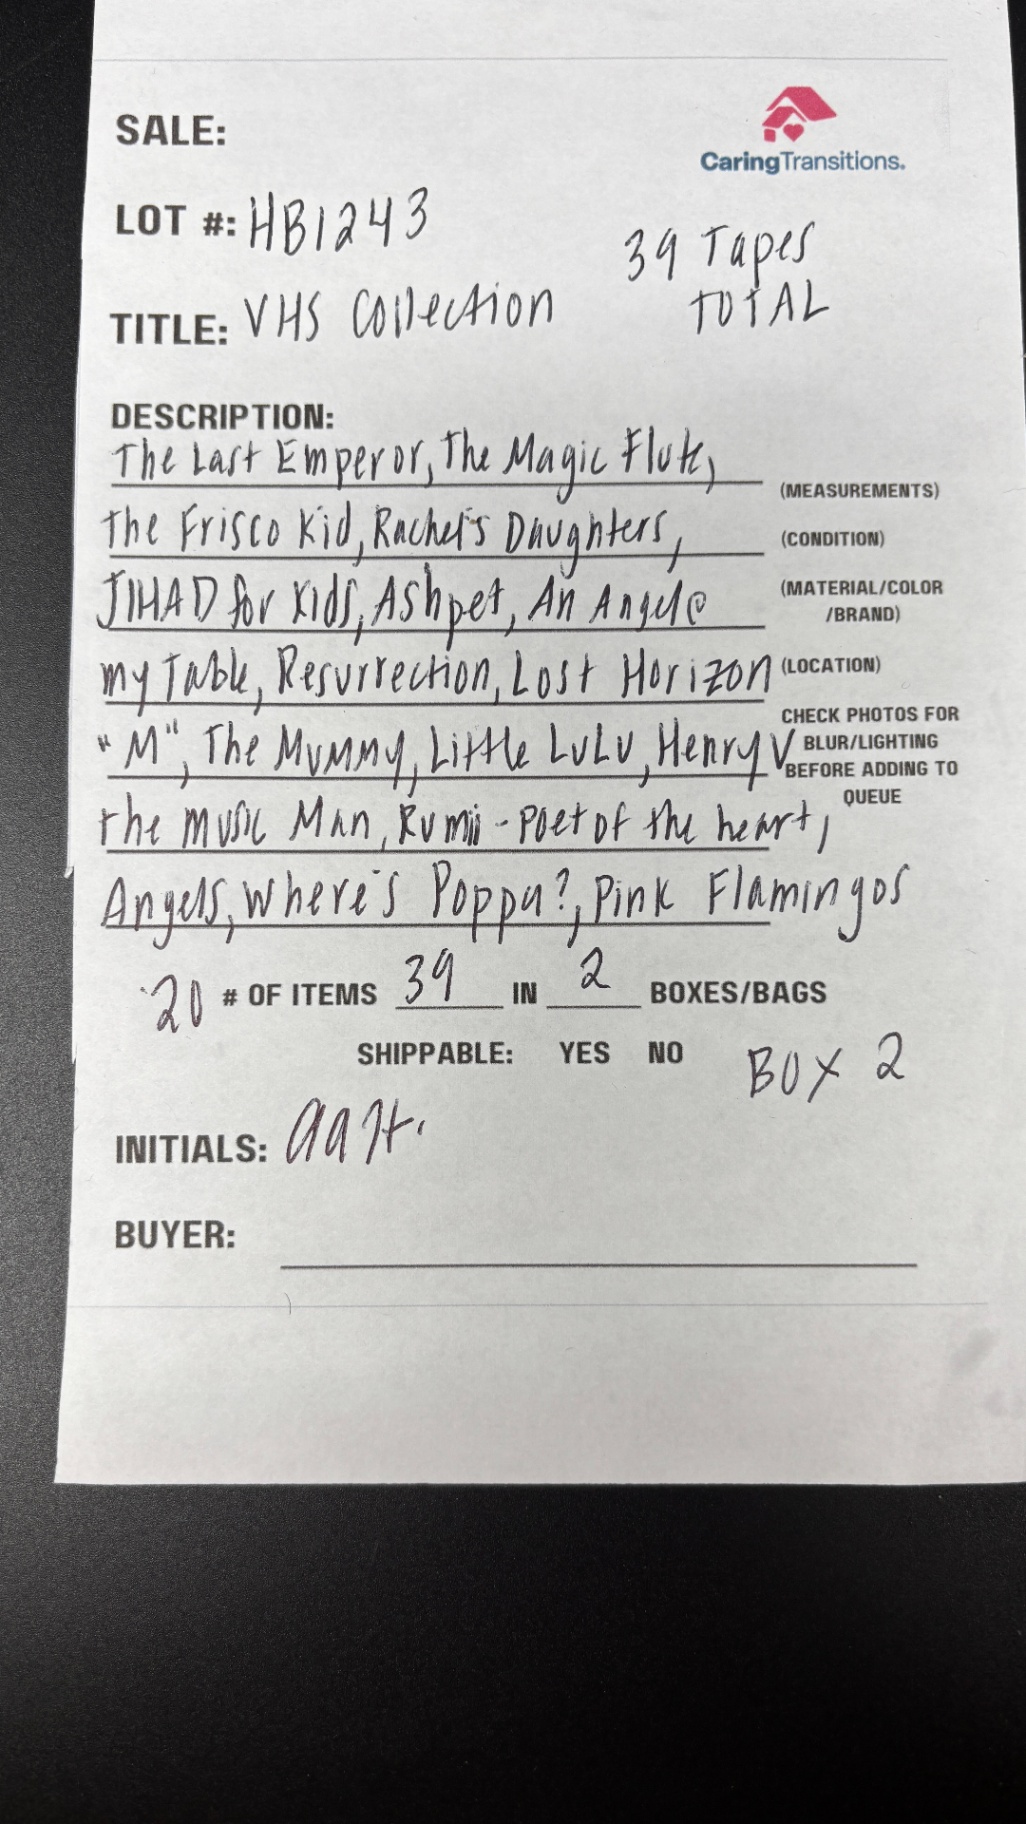 SALE:
CaringTransitions.
LOT #: HB1243
39 Tapes
TOTAL
TITLE: VHS Collection
DESCRIPTION:
The Last Emperor, The Magic Flute,
(MEASUREMENTS)
The Frisco Kid, Rachel's Daughters,
(CONDITION)
JIHAD for Kids, Ashpet, An Angel @
(MATERIAL/COLOR
/BRAND)
my Table, Resurrection, Lost Horizon
(LOCATION)
"M", The Mummy, Little LuLu, Henry V
CHECK PHOTOS FOR
BLUR/LIGHTING
BEFORE ADDING TO
QUEUE
the music Man, Rumii - Poet of the heart,
Angels, Where's Poppa?, Pink Flamingos
20 # OF ITEMS 39 IN 2 BOXES/BAGS
SHIPPABLE: YES NO
BOX 2
INITIALS:
BUYER: